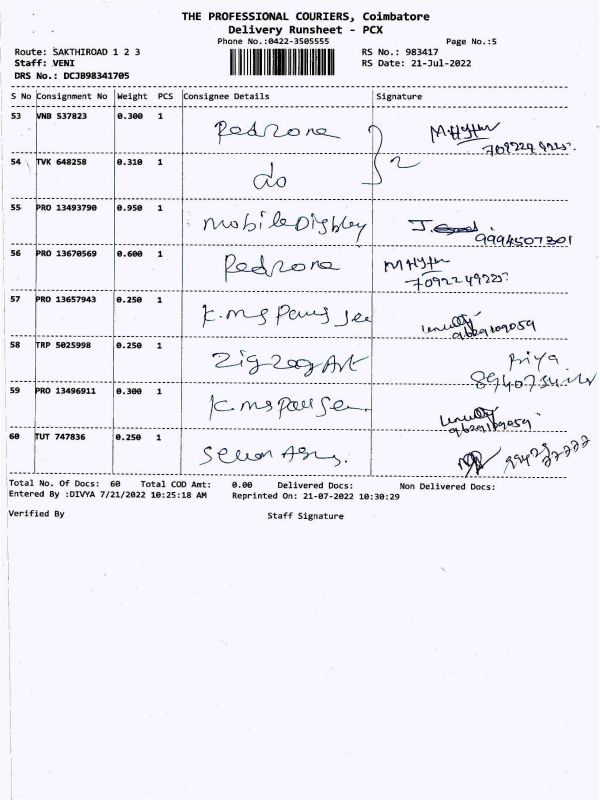 THE PROFESSIONAL COURIERS, Coimbatore
Delivery Runsheet - PCX
Phone No.:0422-3505555 Page No.:5
Route: SAKTHIROAD 1 2 3 RS No.: 983417
Staff: VENI RS Date: 21-Jul-2022
DRS No.: DCJB98341705
S No Consignment No Weight PCS Consignee Details Signature
53 VNB 537823 0.300 1 Redzone
54 TVK 648258 0.310 1 do 2
55 PRO 13493790 0.950 1 mobile Display J. 9994507301
56 PRO 13670569 0.600 1 Redzone
57 PRO 13657943 0.250 1 K.mg 9629109059
58 TRP 5025998 0.250 1 Zigzag Art Priya
59 PRO 13496911 0.300 1 K.mg 9629109059
60 TUT 747836 0.250 1
Total No. Of Docs: 60 Total COD Amt: 0.00 Delivered Docs: Non Delivered Docs:
Entered By :DIVYA 7/21/2022 10:25:18 AM Reprinted On: 21-07-2022 10:30:29
Verified By Staff Signature